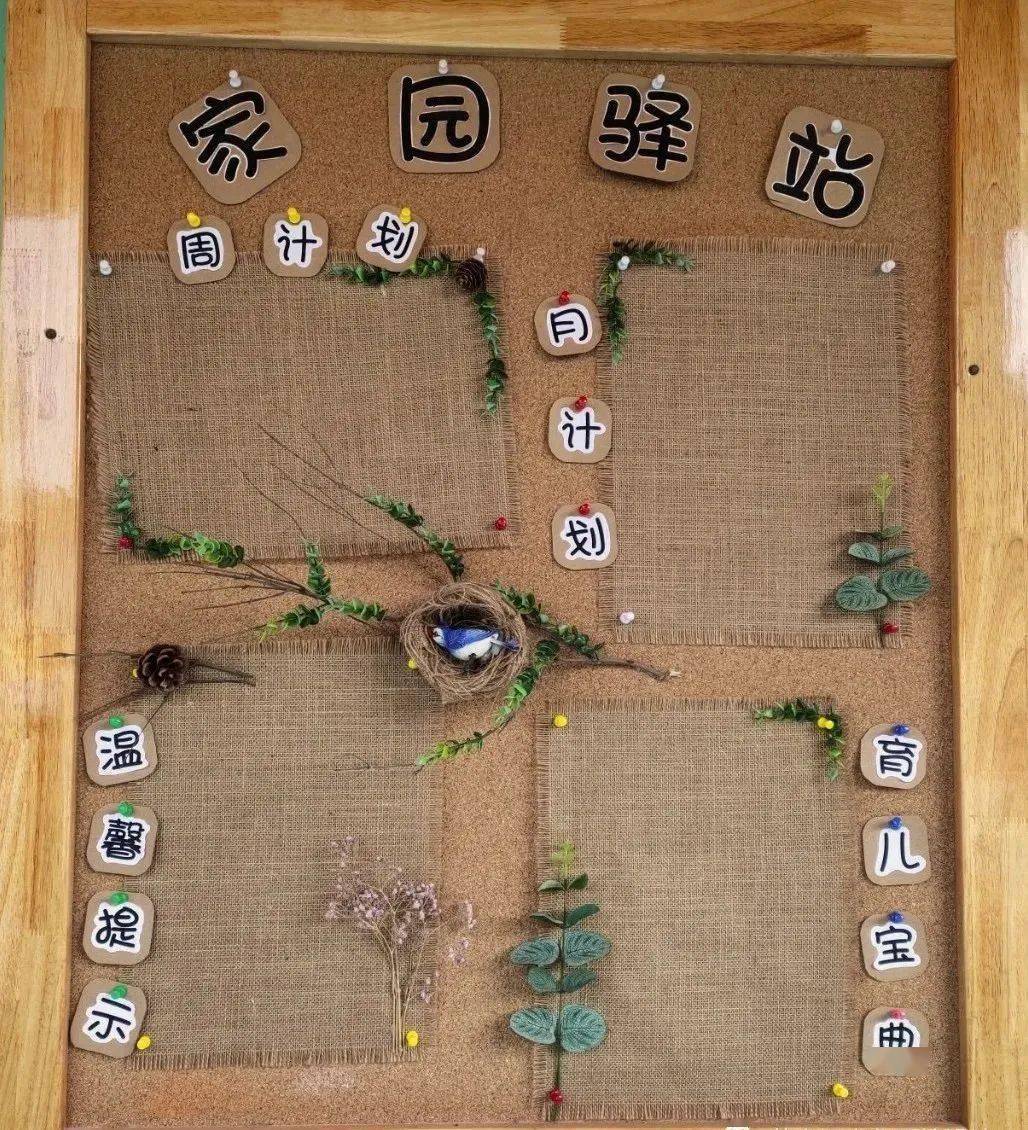 家园驿站
周计划
月计划
温馨提示
育儿宝典